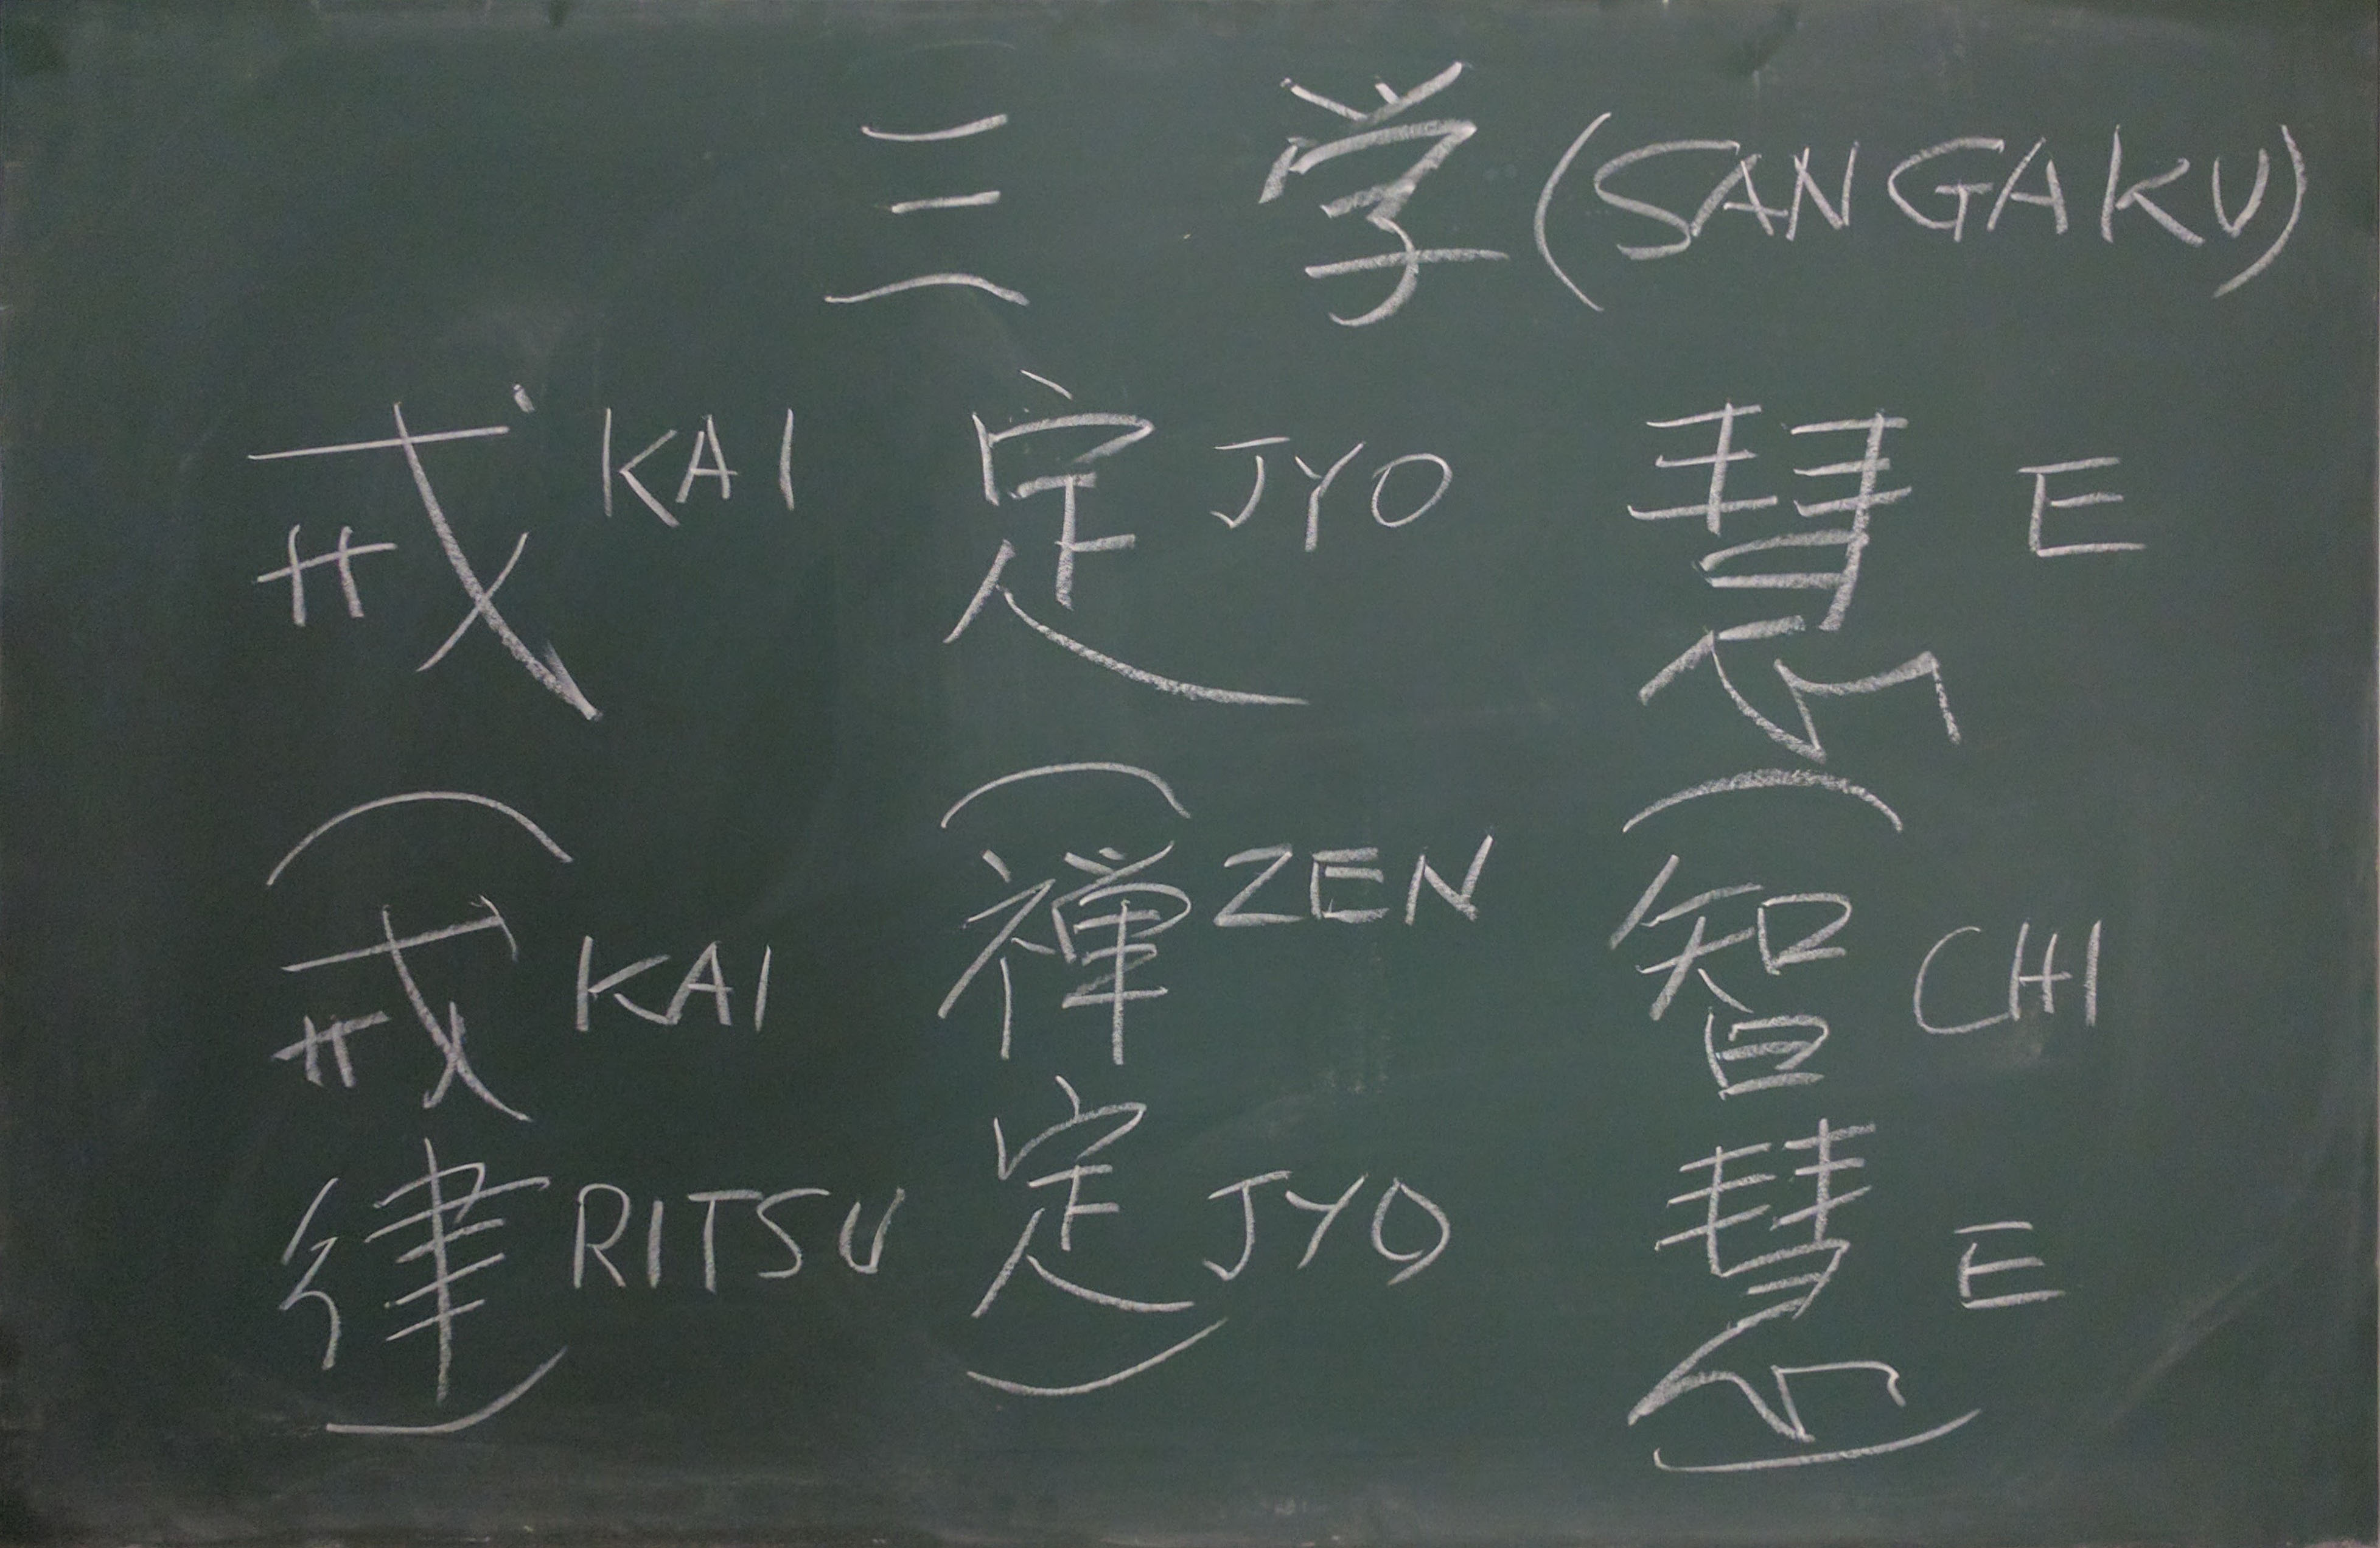 三 学 (SANGAKU)
戒 KAI 定 JYO 慧 E
(戒 KAI (禅 ZEN (智 CHI
律) RITSU 定) JYO 慧) E